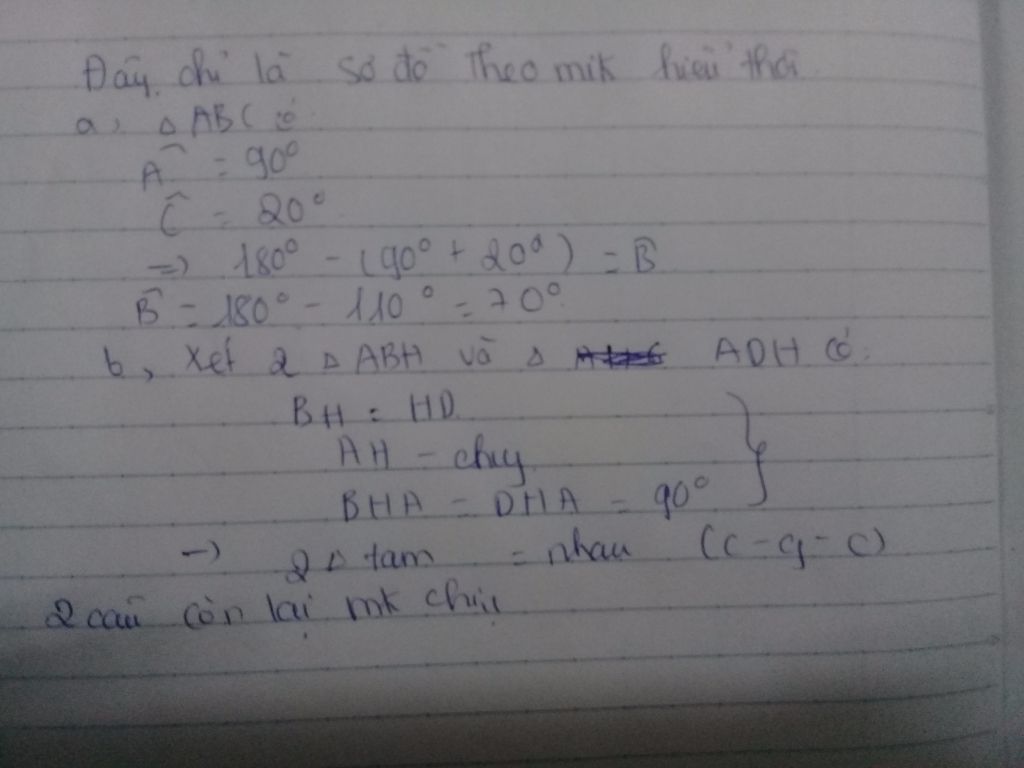 Đây chỉ là sơ đồ theo mik hiểu thôi
a, △ABC có
Â = 90°
Ĉ = 20°
=> 180° - (90° + 20°) = B̂
B̂ = 180° - 110° = 70°
b, xét 2 △ ABH và △ ADH có
BH = HD
AH - chug
BHA = DHA = 90°
-> 2 △ tam = nhau (c-g-c)
2 câu còn lại mk chịu